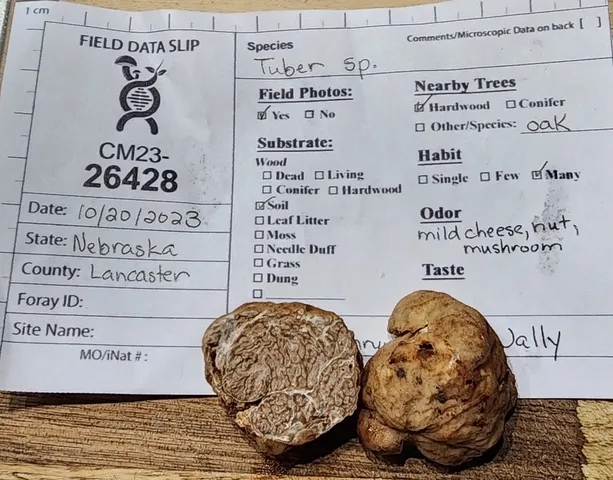 1 cm
FIELD DATA SLIP
CM23-
26428
Date: 10/20/2023
State: Nebraska
County: Lancaster
Foray ID:
Site Name:
MO/iNat #:
Comments/Microscopic Data on back [ ]
Species
Tuber sp.
Field Photos:
☑ Yes ☐ No
Substrate:
Wood
☐ Dead ☐ Living
☐ Conifer ☐ Hardwood
☑ Soil
☐ Leaf Litter
☐ Moss
☐ Needle Duff
☐ Grass
☐ Dung
☐
Nearby Trees
☑ Hardwood ☐ Conifer
☐ Other/Species: oak
Habit
☐ Single ☐ Few ☑ Many
Odor
mild cheese, nut,
mushroom
Taste